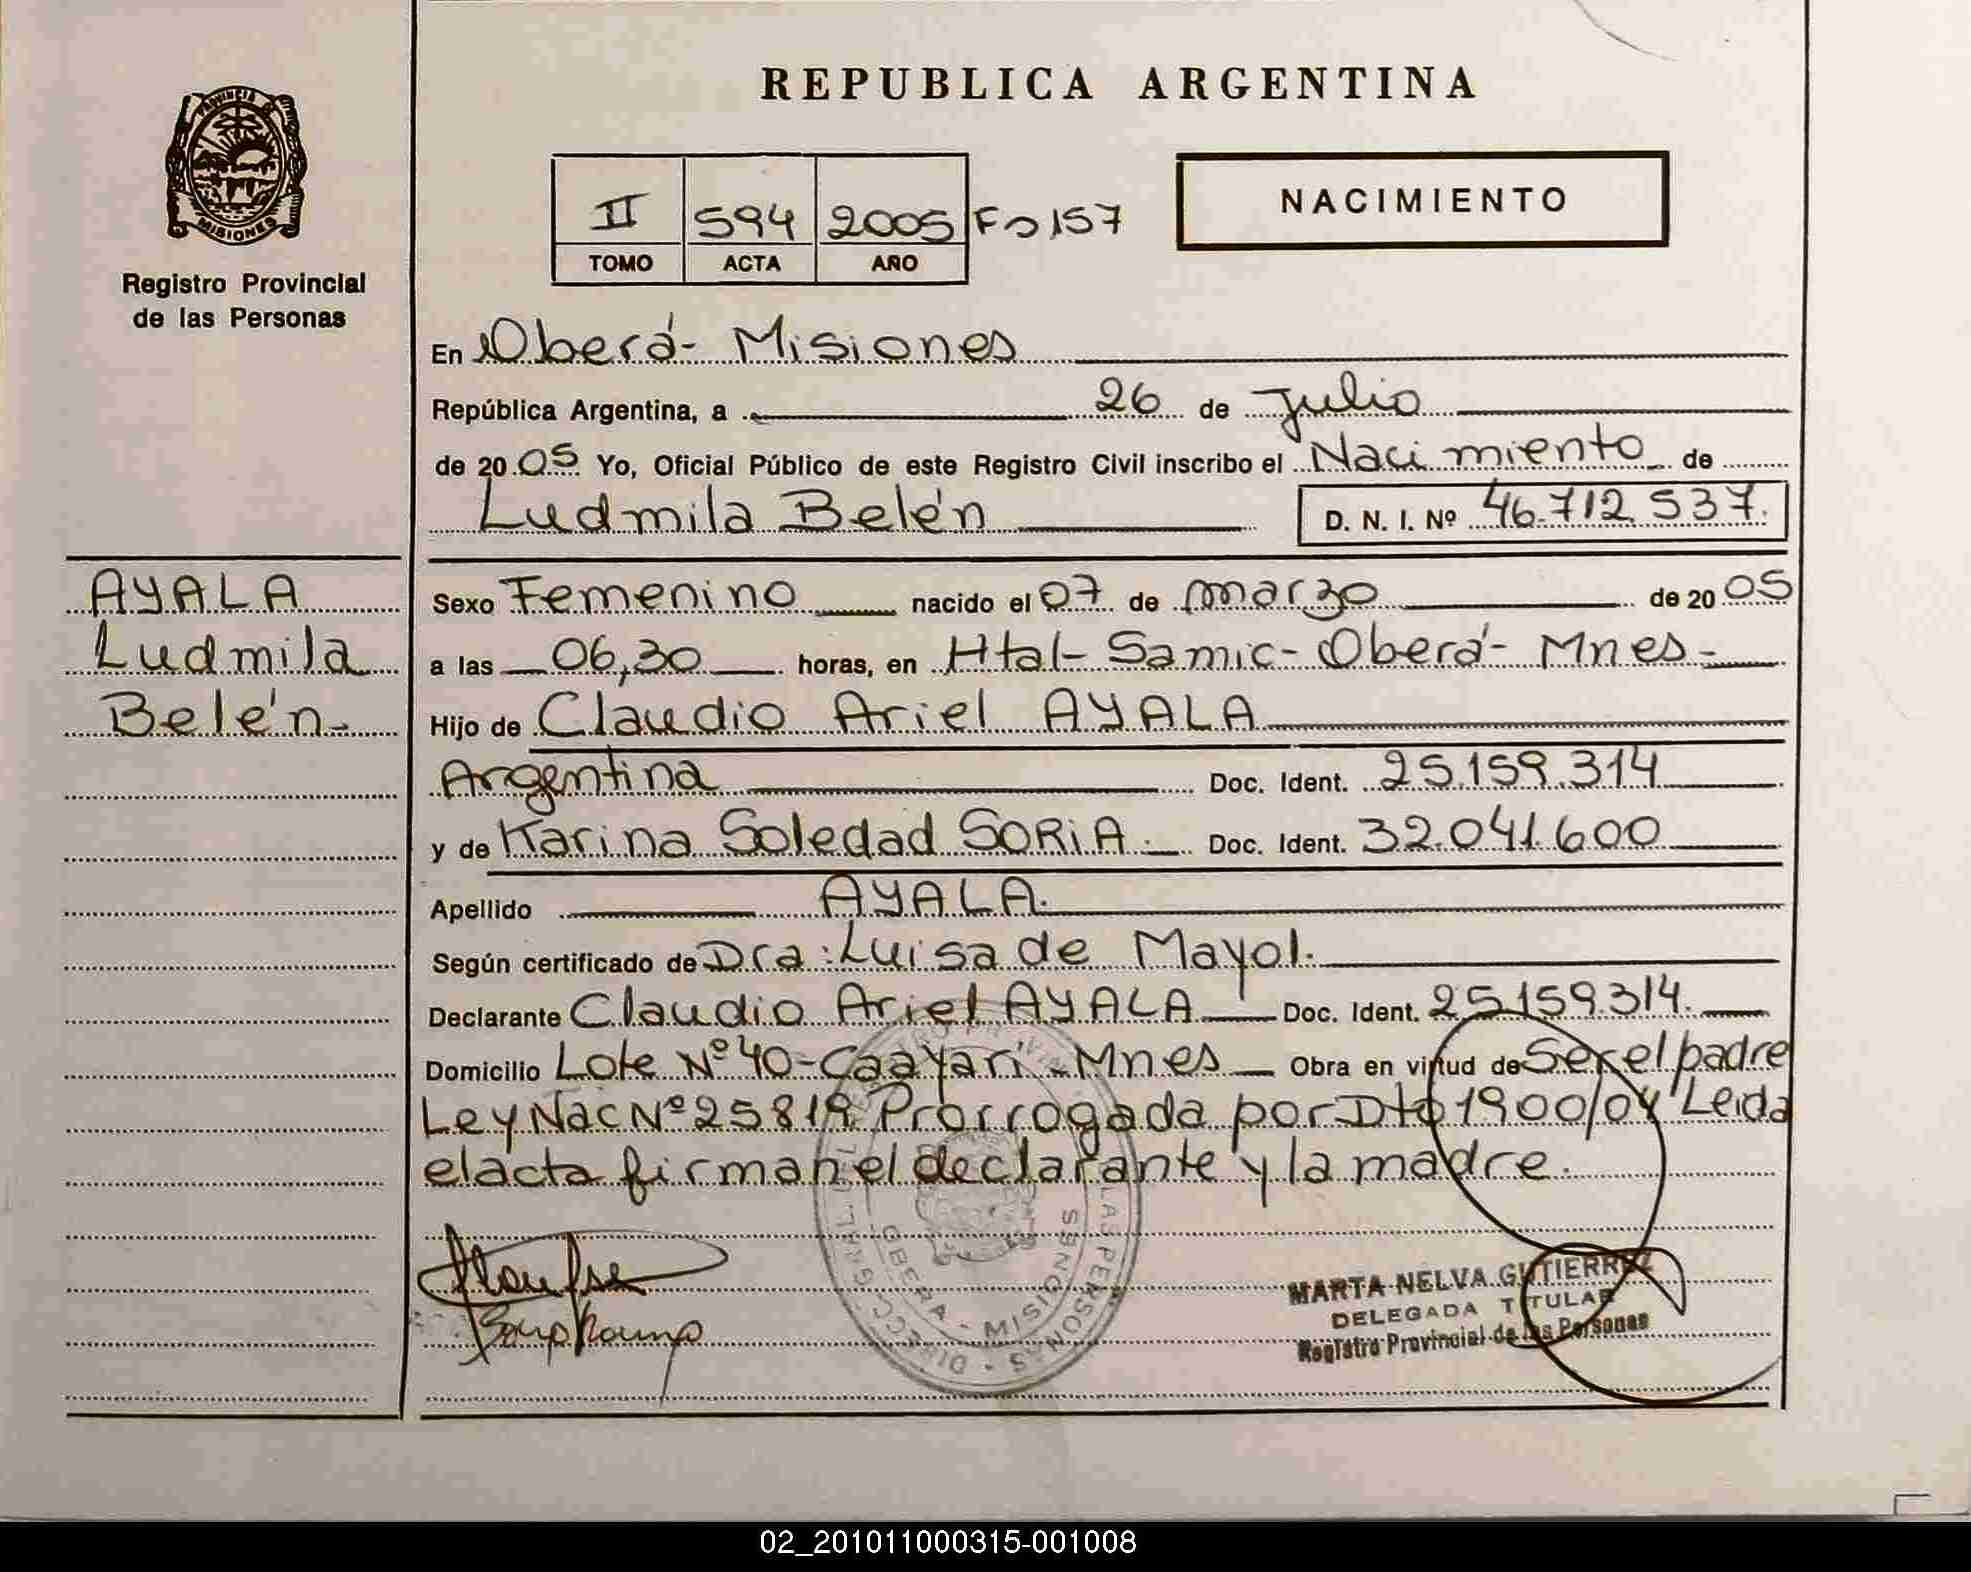 REPUBLICA ARGENTINA
PROVINCIA DE
MISIONES
Registro Provincial
de las Personas
II 594 2005 Fo 157
TOMO ACTA AÑO
NACIMIENTO
En Oberá- Misiones
República Argentina, a 26 de Julio
de 2005 Yo, Oficial Público de este Registro Civil inscribo el Nacimiento de
Ludmila Belén D. N. I. Nº 46.712.537.
AYALA
Ludmila
Belén-
Sexo Femenino nacido el 07 de marzo de 2005
a las 06,30 horas, en Htal- Samic- Oberá- Mnes-
Hijo de Claudio Ariel AYALA
Argentina Doc. Ident. 25.159.314
y de Karina Soledad SORIA. Doc. Ident. 32.041.600
Apellido AYALA.
Según certificado de Dra: Luisa de Mayol.
Declarante Claudio Ariel AYALA Doc. Ident. 25.159.314.
Domicilio Lote Nº 40-Caayarí-Mnes Obra en virtud de Ser el padre
Ley Nac Nº 25819 Prorrogada por Dto 1900/04 Leida
el acta firman el declarante y la madre.
OBERA - MISIONES
LAS PERSONAS
MARTA NELVA GUTIERREZ
DELEGADA TITULAR
Registro Provincial de las Personas
02_201011000315-001008